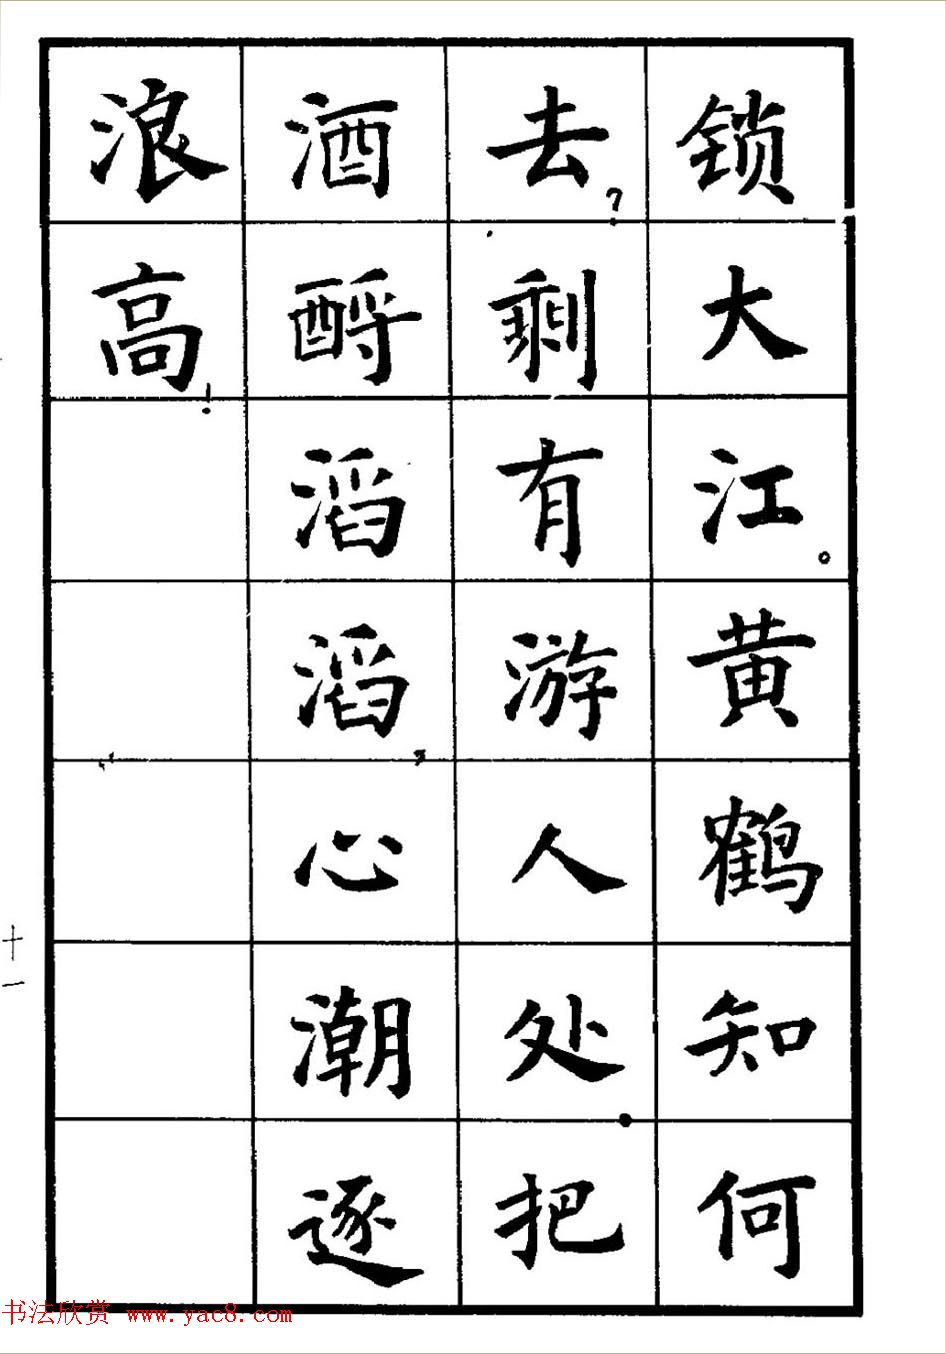 锁大江。黄鹤知何
去?剩有游人处.把
酒酹滔滔,心潮逐
浪高!
十一
书法欣赏 www.yac8.com